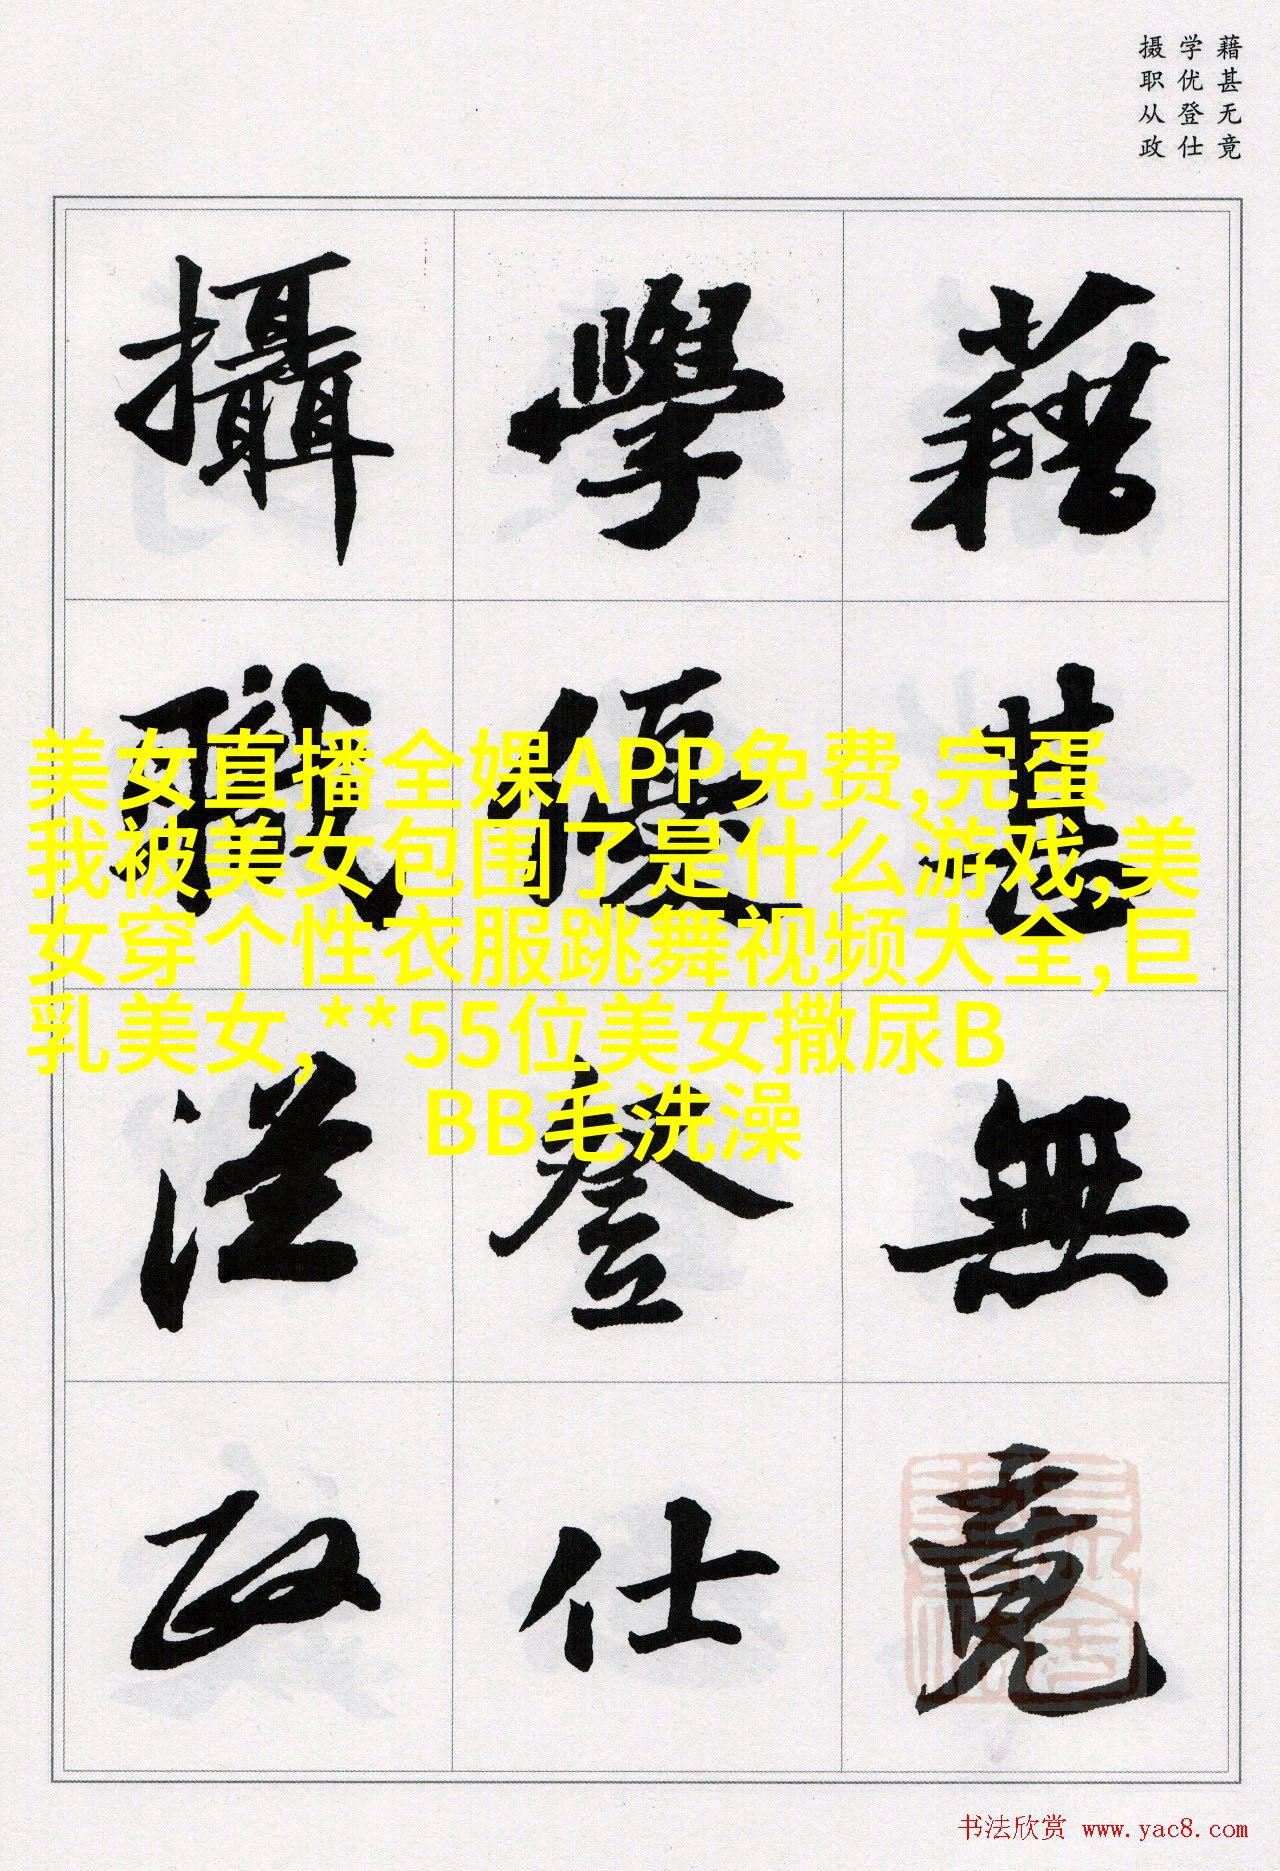 藉甚无竟
学优登仕
摄职从政
藉甚無竟
學優登仕
攝職從政
美女直播全婐APP免费,完蛋
我被美女包围了是什么游戏,美
女穿个性衣服跳舞视频大全,巨
乳美女,**55位美女撒尿B
BB毛洗澡
书法欣赏 www.yac8.com